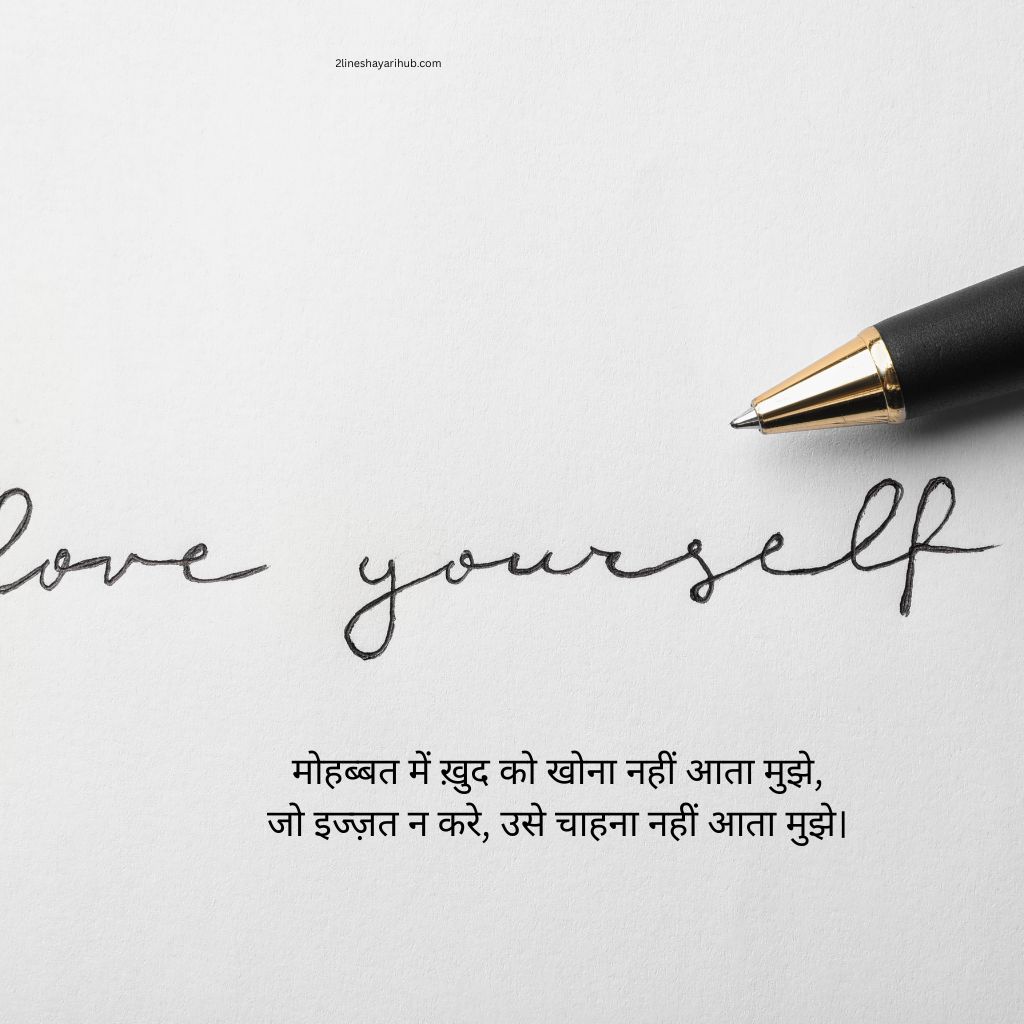 2lineshayarihub.com
love yourself
मोहब्बत में ख़ुद को खोना नहीं आता मुझे,
जो इज्ज़त न करे, उसे चाहना नहीं आता मुझे।